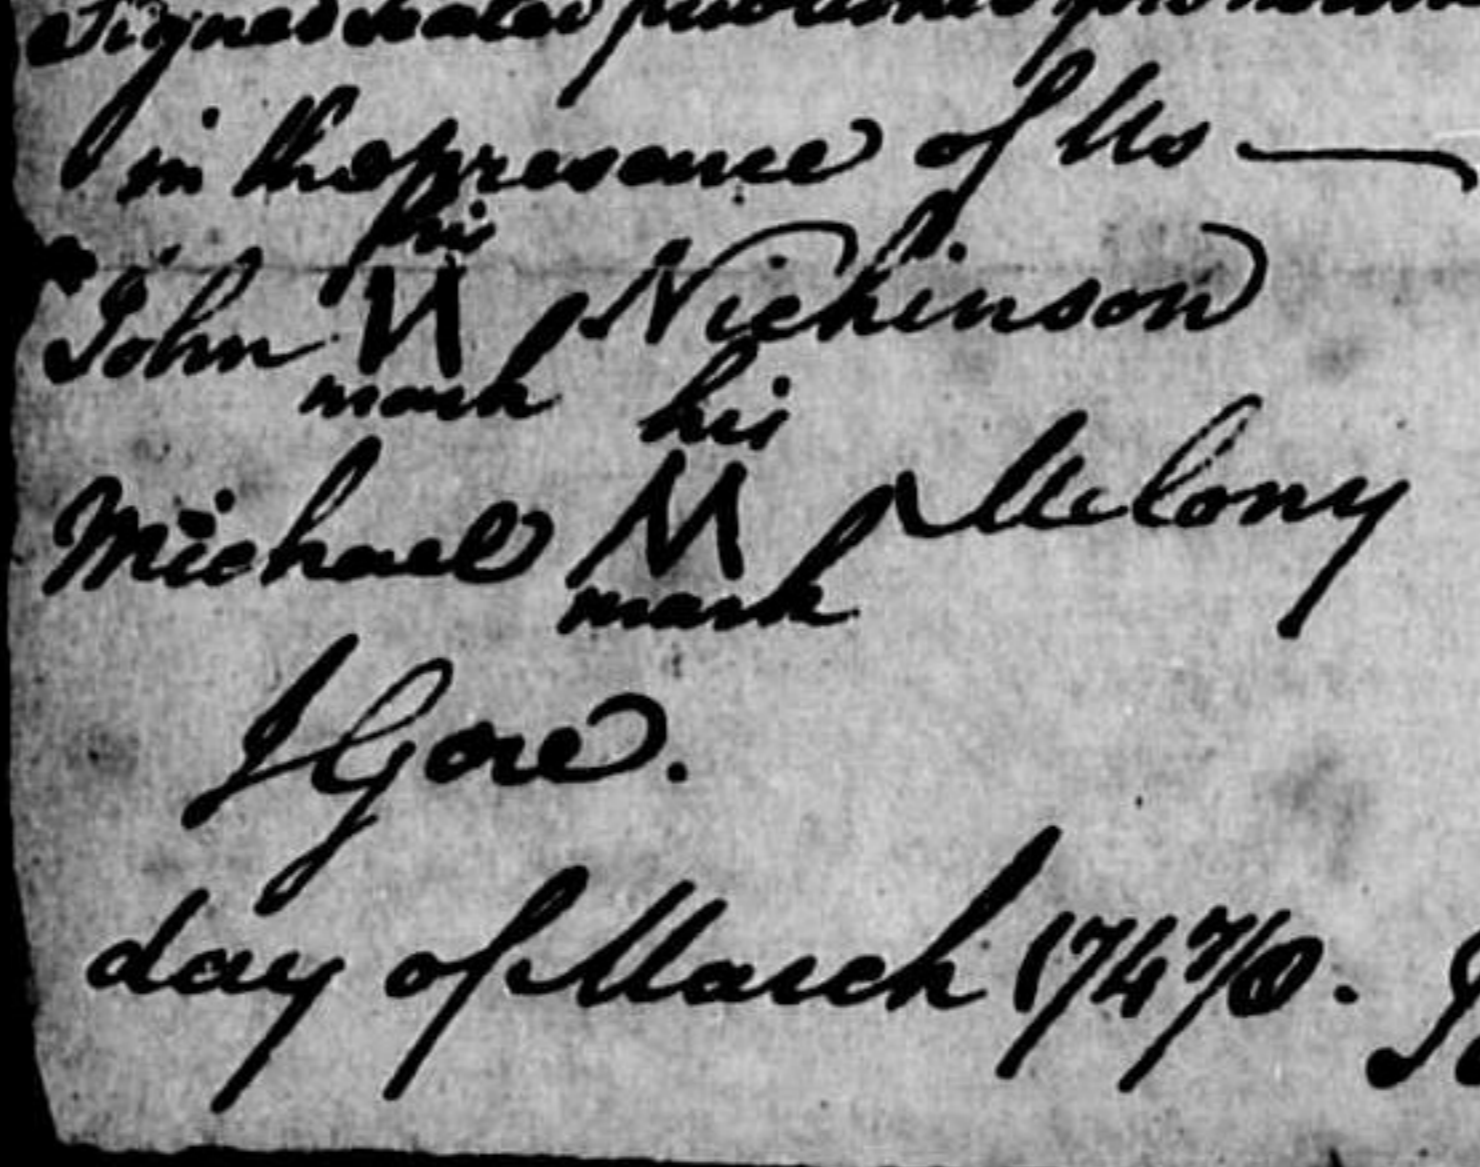 Signed Sealed published
in the presence of Us
his
John N Nickinson
mark
his
Michael M Melony
mark
J Gore.
day of March 174 7/8.